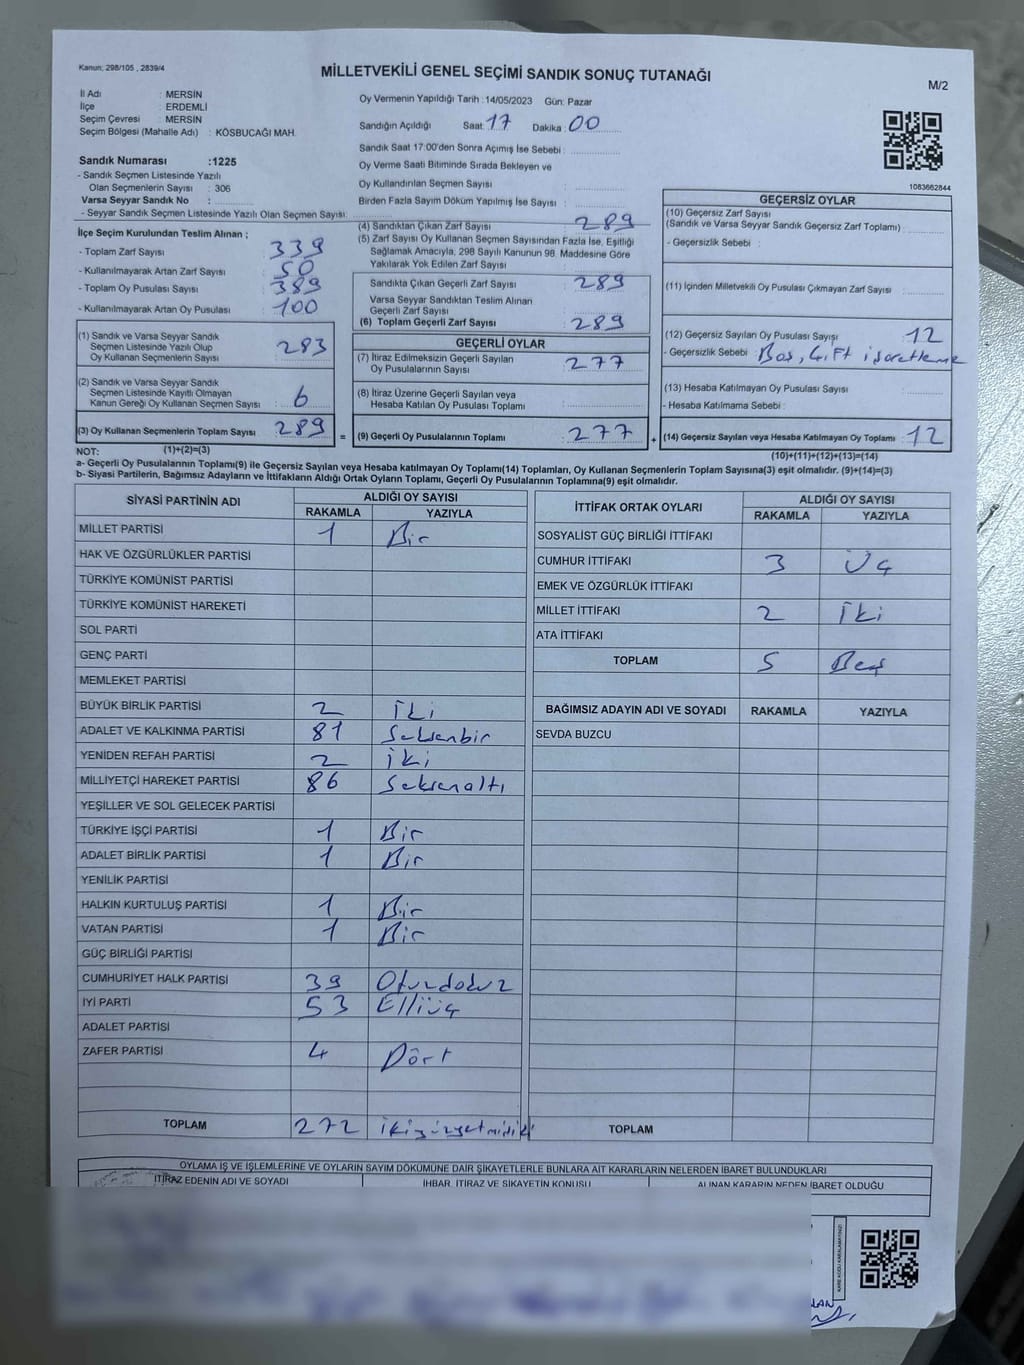 Kanun; 298/105 , 2839/4
MİLLETVEKİLİ GENEL SEÇİMİ SANDIK SONUÇ TUTANAĞI
M/2
İl Adı : MERSİN
İlçe : ERDEMLİ
Seçim Çevresi : MERSİN
Seçim Bölgesi (Mahalle Adı) : KÖSBUCAĞI MAH.
Oy Vermenin Yapıldığı Tarih :14/05/2023 Gün: Pazar
Sandığın Açıldığı Saat: 17 Dakika: 00
Sandık Saat 17:00'den Sonra Açımış İse Sebebi :
Oy Verme Saati Bitiminde Sırada Bekleyen ve
Oy Kullandırılan Seçmen Sayısı :
Birden Fazla Sayım Döküm Yapılmış İse Sayısı :
Sandık Numarası :1225
- Sandık Seçmen Listesinde Yazılı
Olan Seçmenlerin Sayısı : 306
Varsa Seyyar Sandık No :
- Seyyar Sandık Seçmen Listesinde Yazılı Olan Seçmen Sayısı:
1083662844
İlçe Seçim Kurulundan Teslim Alınan ;
- Toplam Zarf Sayısı : 339
- Kullanılmayarak Artan Zarf Sayısı : 50
- Toplam Oy Pusulası Sayısı : 389
- Kullanılmayarak Artan Oy Pusulası : 100
(1) Sandık ve Varsa Seyyar Sandık
Seçmen Listesinde Yazılı Olup
Oy Kullanan Seçmenlerin Sayısı : 283
(2) Sandık ve Varsa Seyyar Sandık
Seçmen Listesinde Kayıtlı Olmayan
Kanun Gereği Oy Kullanan Seçmen Sayısı : 6
(3) Oy Kullanan Seçmenlerin Toplam Sayısı : 289
(4) Sandıktan Çıkan Zarf Sayısı : 289
(5) Zarf Sayısı Oy Kullanan Seçmen Sayısından Fazla İse, Eşitliği
Sağlamak Amacıyla, 298 Sayılı Kanunun 98. Maddesine Göre
Yakılarak Yok Edilen Zarf Sayısı :
Sandıkta Çıkan Geçerli Zarf Sayısı : 289
Varsa Seyyar Sandıktan Teslim Alınan
Geçerli Zarf Sayısı :
(6) Toplam Geçerli Zarf Sayısı : 289
GEÇERLİ OYLAR
(7) İtiraz Edilmeksizin Geçerli Sayılan
Oy Pusulalarının Sayısı : 277
(8) İtiraz Üzerine Geçerli Sayılan veya
Hesaba Katılan Oy Pusulası Toplamı :
= (9) Geçerli Oy Pusulalarının Toplamı : 277
GEÇERSİZ OYLAR
(10) Geçersiz Zarf Sayısı
(Sandık ve Varsa Seyyar Sandık Geçersiz Zarf Toplamı) :
- Geçersizlik Sebebi :
(11) İçinden Milletvekili Oy Pusulası Çıkmayan Zarf Sayısı :
(12) Geçersiz Sayılan Oy Pusulası Sayısı : 12
- Geçersizlik Sebebi : Boş, Çift işaretleme
(13) Hesaba Katılmayan Oy Pusulası Sayısı :
- Hesaba Katılmama Sebebi :
+ (14) Geçersiz Sayılan veya Hesaba Katılmayan Oy Toplamı : 12
NOT: (1)+(2)=(3)
(10)+(11)+(12)+(13)=(14)
a- Geçerli Oy Pusulalarının Toplamı(9) ile Geçersiz Sayılan veya Hesaba katılmayan Oy Toplamı(14) Toplamları, Oy Kullanan Seçmenlerin Toplam Sayısına(3) eşit olmalıdır. (9)+(14)=(3)
b- Siyasi Partilerin, Bağımsız Adayların ve İttifakların Aldığı Ortak Oyların Toplamı, Geçerli Oy Pusulalarının Toplamına(9) eşit olmalıdır.
SİYASİ PARTİNİN ADI ALDIĞI OY SAYISI
RAKAMLA YAZIYLA
MİLLET PARTİSİ 1 Bir
HAK VE ÖZGÜRLÜKLER PARTİSİ
TÜRKİYE KOMÜNİST PARTİSİ
TÜRKİYE KOMÜNİST HAREKETİ
SOL PARTİ
GENÇ PARTİ
MEMLEKET PARTİSİ
BÜYÜK BİRLİK PARTİSİ 2 İki
ADALET VE KALKINMA PARTİSİ 81 Seksenbir
YENİDEN REFAH PARTİSİ 2 iki
MİLLİYETÇİ HAREKET PARTİSİ 86 Seksenaltı
YEŞİLLER VE SOL GELECEK PARTİSİ
TÜRKİYE İŞÇİ PARTİSİ 1 Bir
ADALET BİRLİK PARTİSİ 1 Bir
YENİLİK PARTİSİ
HALKIN KURTULUŞ PARTİSİ 1 Bir
VATAN PARTİSİ 1 Bir
GÜÇ BİRLİĞİ PARTİSİ
CUMHURİYET HALK PARTİSİ 39 Otuzdokuz
İYİ PARTİ 53 Elliüç
ADALET PARTİSİ
ZAFER PARTİSİ 4 Dört
TOPLAM 272 ikiyüzyetmişiki
İTTİFAK ORTAK OYLARI ALDIĞI OY SAYISI
RAKAMLA YAZIYLA
SOSYALİST GÜÇ BİRLİĞİ İTTİFAKI
CUMHUR İTTİFAKI 3 Üç
EMEK VE ÖZGÜRLÜK İTTİFAKI
MİLLET İTTİFAKI 2 İki
ATA İTTİFAKI
TOPLAM 5 Beş
BAĞIMSIZ ADAYIN ADI VE SOYADI RAKAMLA YAZIYLA
SEVDA BUZCU
TOPLAM
OYLAMA İŞ VE İŞLEMLERİNE VE OYLARIN SAYIM DÖKÜMÜNE DAİR ŞİKAYETLERLE BUNLARA AİT KARARLARIN NELERDEN İBARET BULUNDUKLARI
İTİRAZ EDENİN ADI VE SOYADI İHBAR, İTİRAZ VE ŞİKAYETİN KONUSU ALINAN KARARIN NEDEN İBARET OLDUĞU